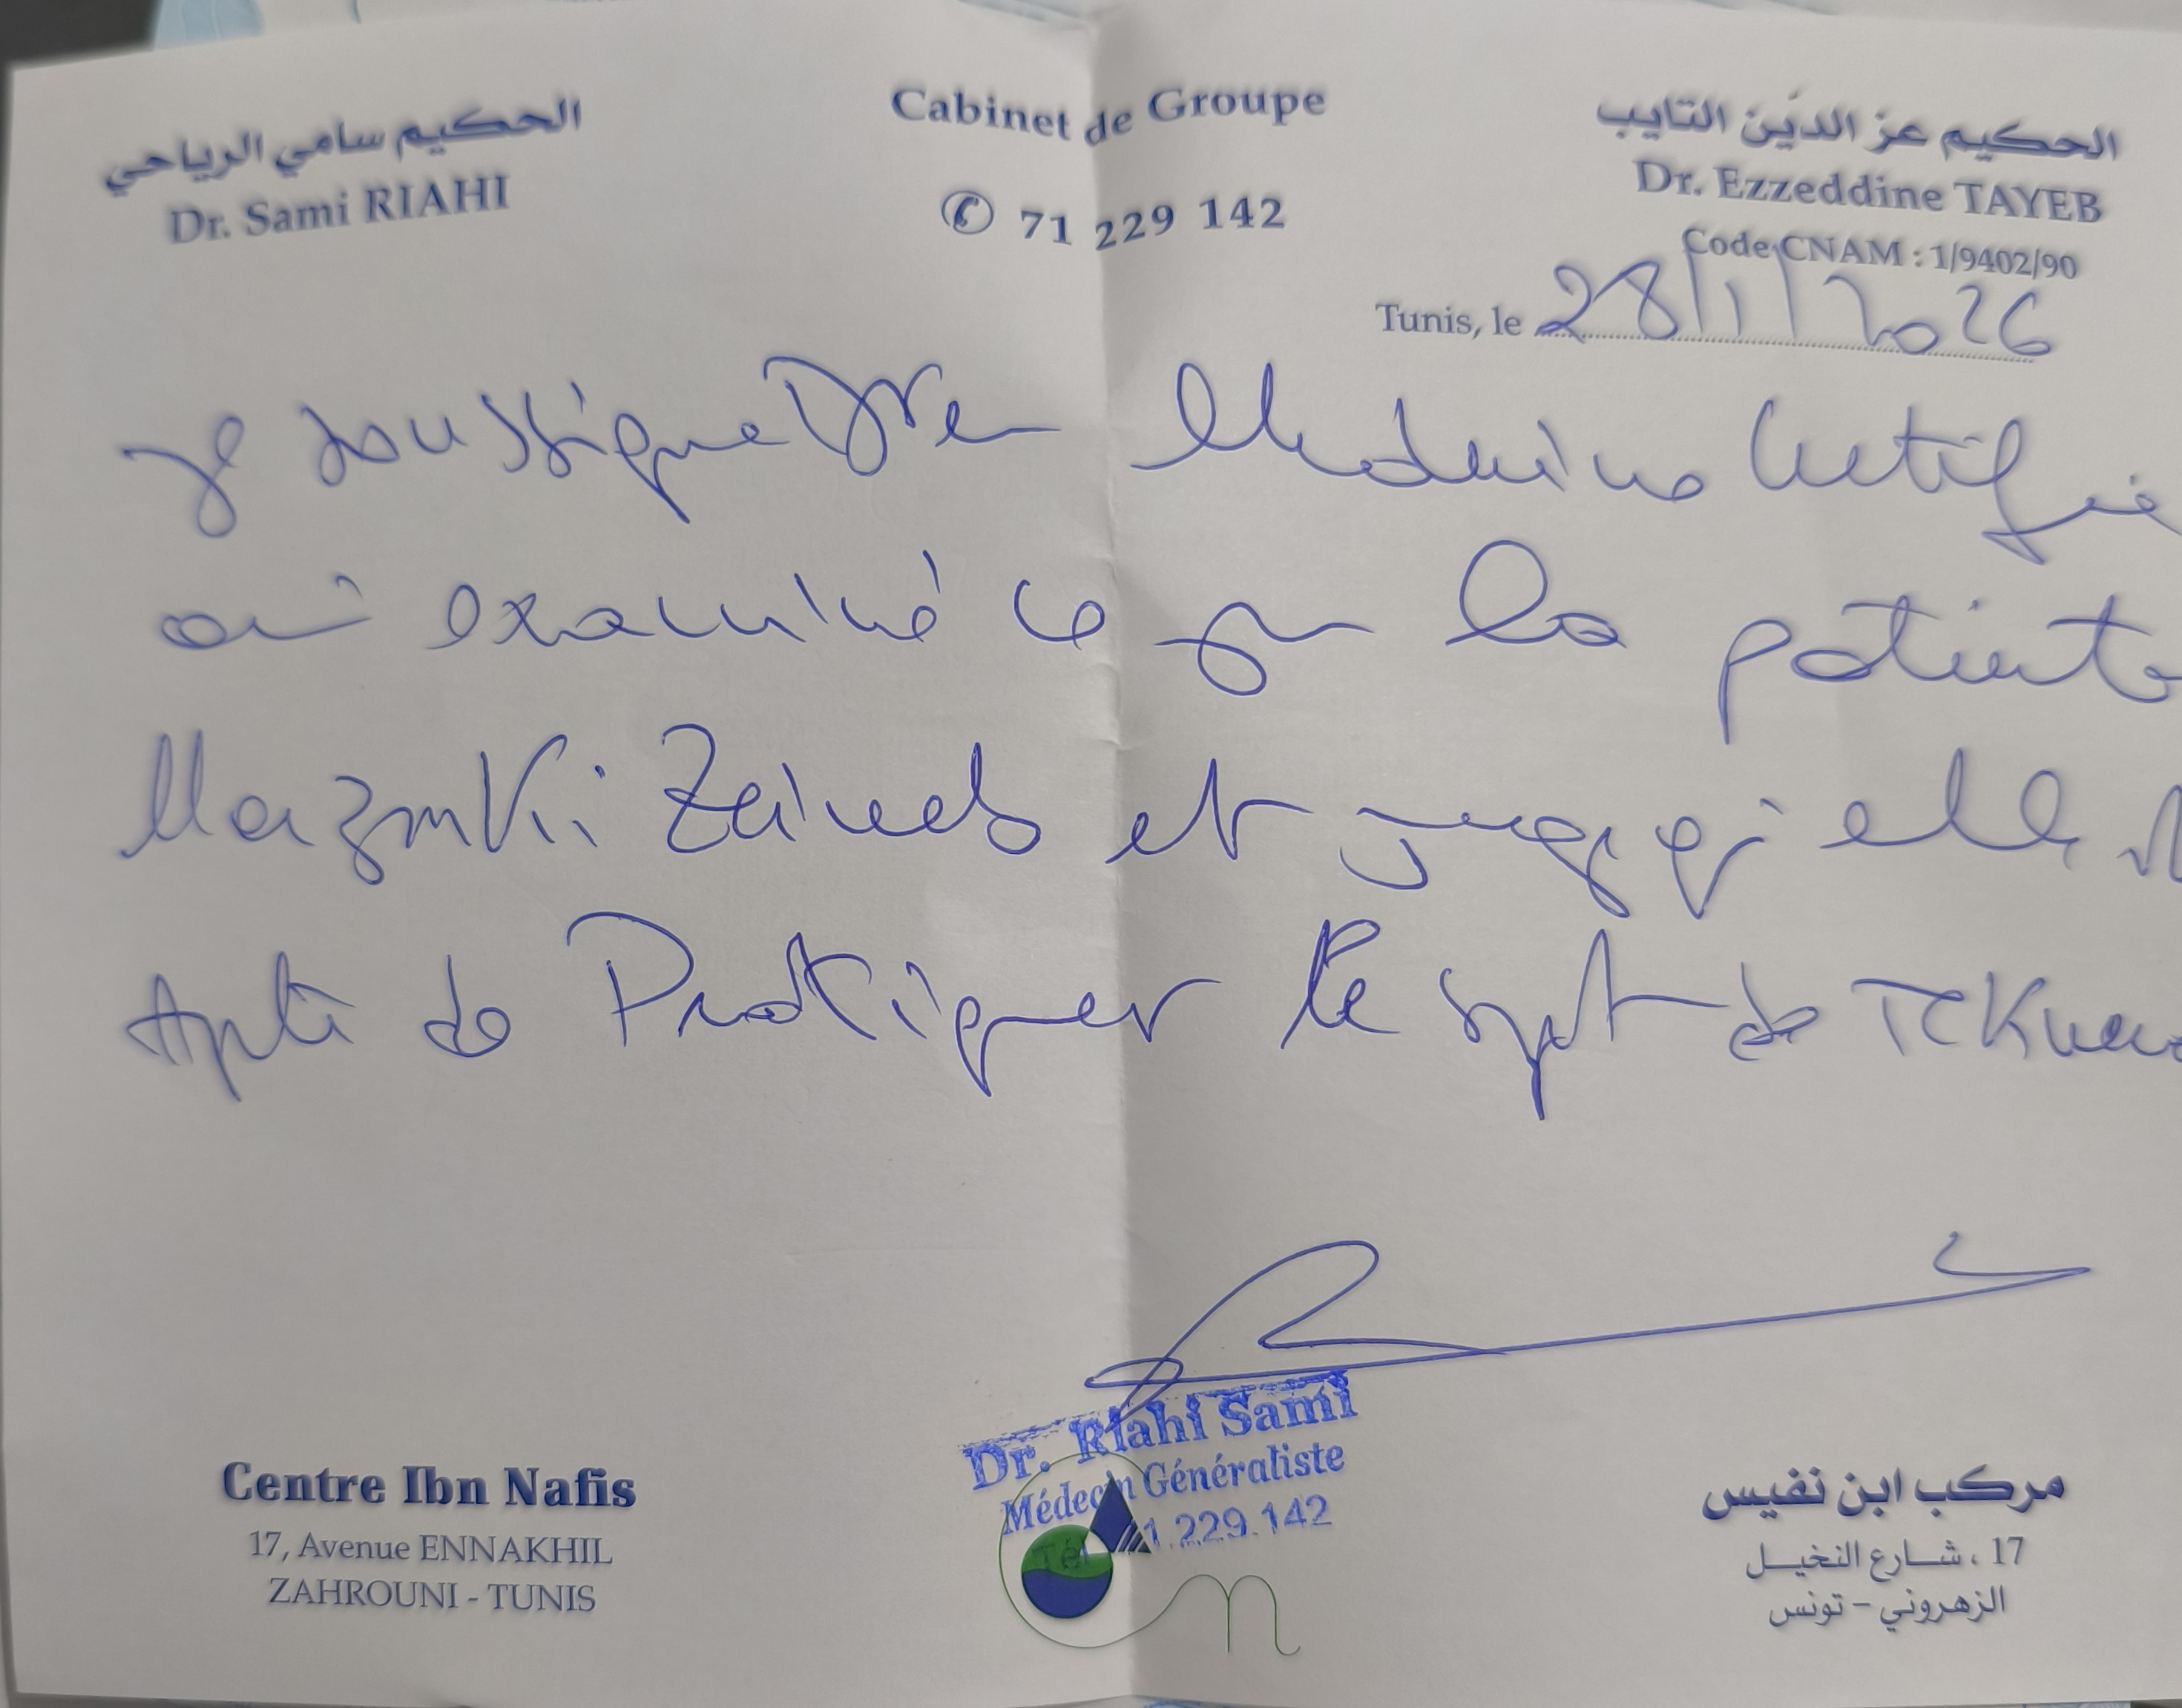 الحكيم سامي الرياحي
Dr. Sami RIAHI
Cabinet de Groupe
✆ 71 229 142
الحكيم عز الدّين التايب
Dr. Ezzeddine TAYEB
Code CNAM : 1/9402/90
Tunis, le 28/1/2026
Je soussigné Dr en Médecine Certifie
ai examiné ce jour la patiente
Zeineb et juge qu'elle
Apte de Pratiquer le sport de
Dr. Riahi Sami
Médecin Généraliste
Tél 71.229.142
Centre Ibn Nafis
17, Avenue ENNAKHIL
ZAHROUNI - TUNIS
مركب ابن نفيس
17 ، شارع النخيل
الزهروني - تونس